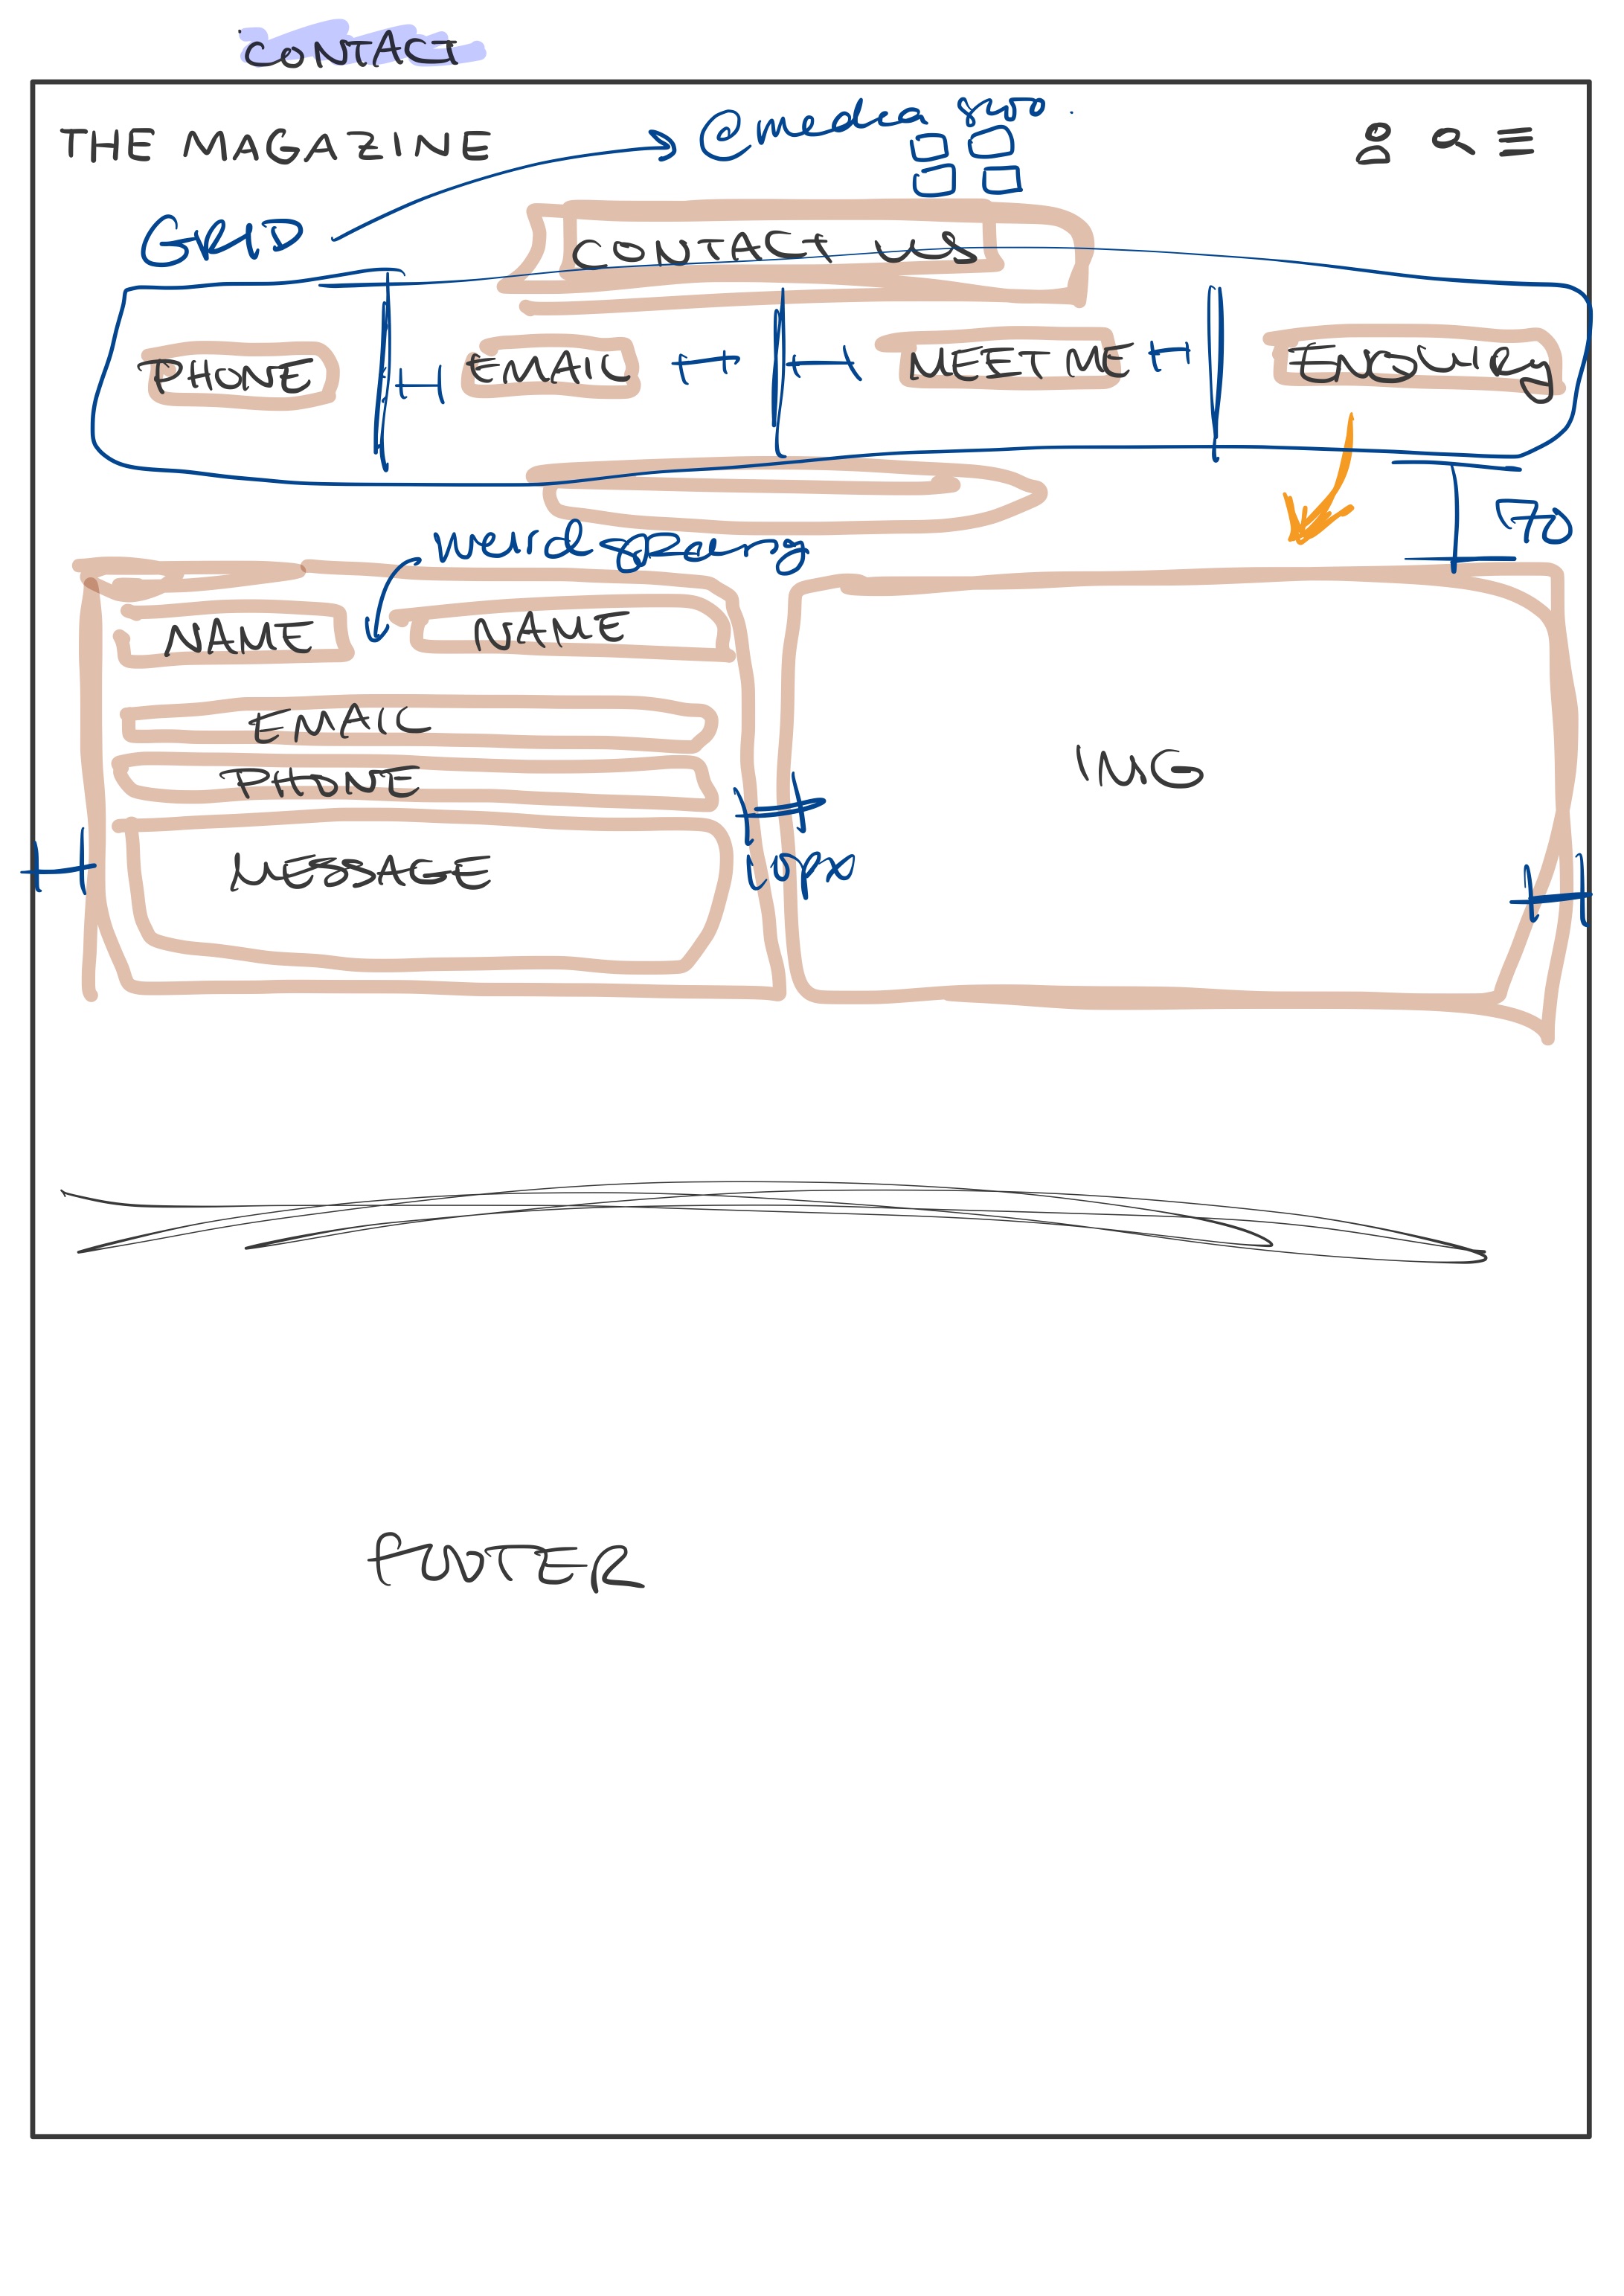 CONTACT
THE MAGAZINE
@media 800
GRID
CONTACT US
PHONE EMAIL MEET ME ENQUIRY
70
weird spacing
NAME NAME
EMAIL
PHONE
IMG
MESSAGE
10px
FOOTER